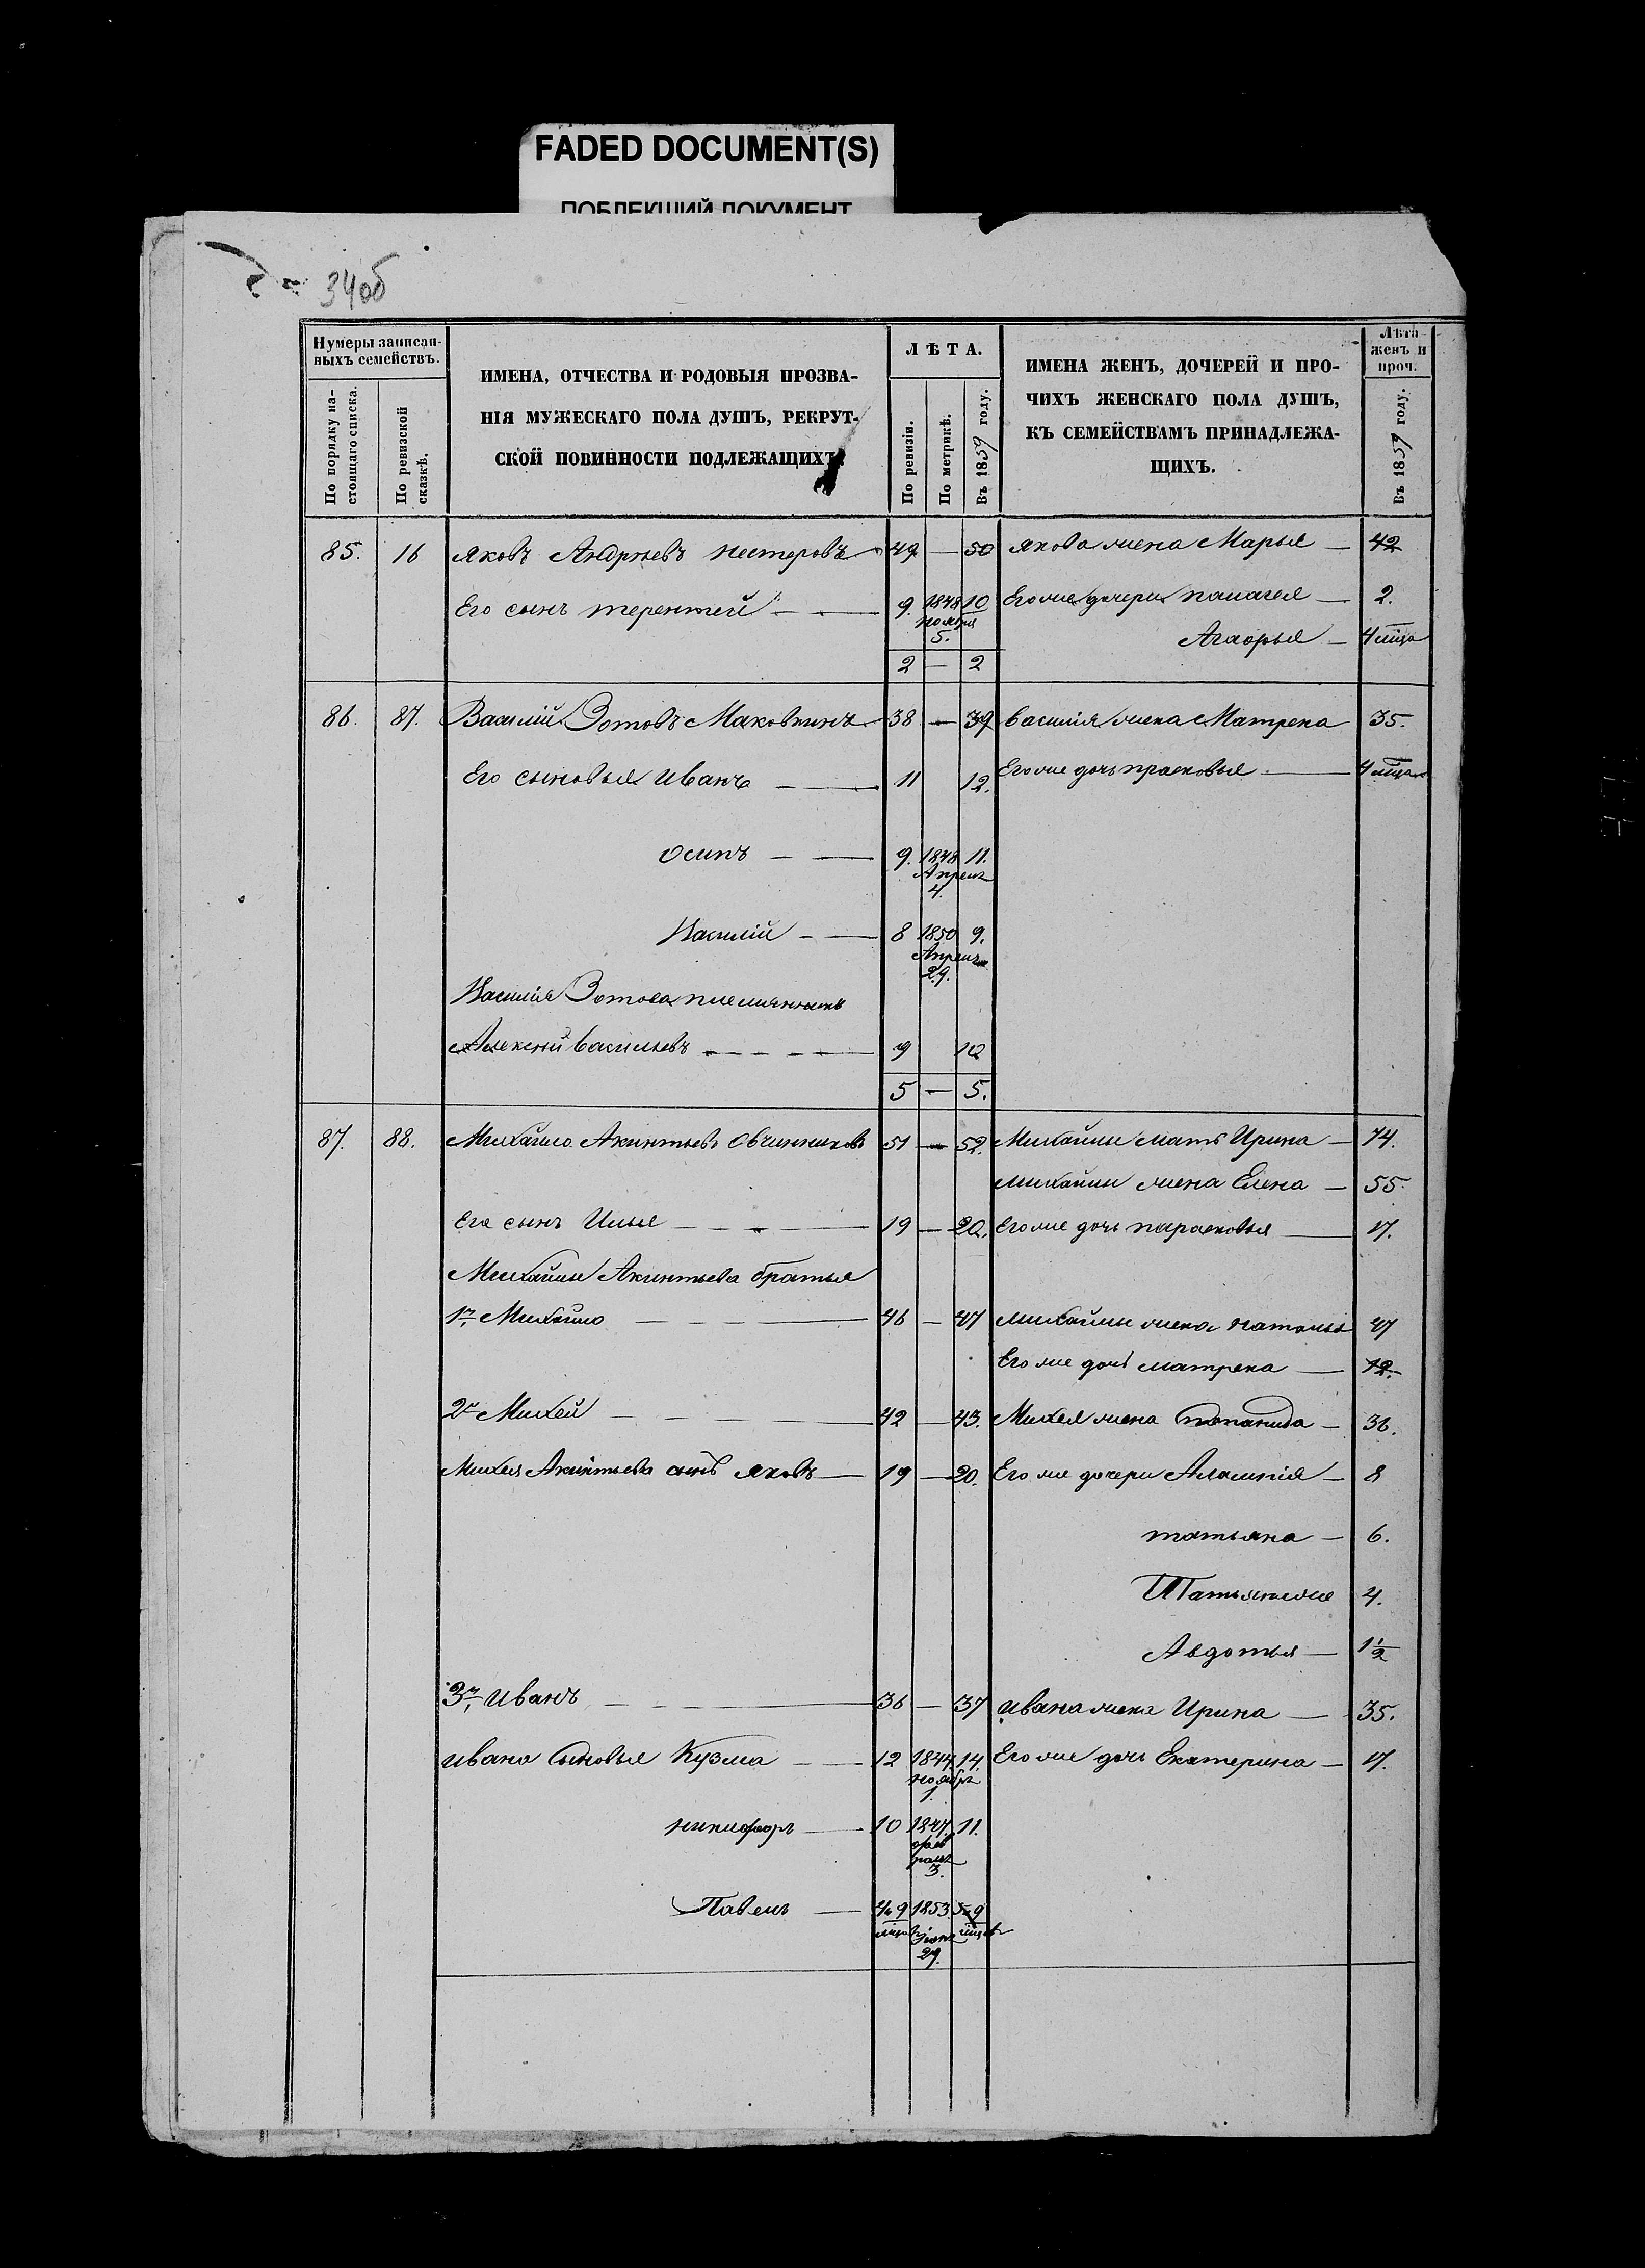 FADED DOCUMENT(S)
ПОБЛЕКШИЙ ДОКУМЕНТ
34об
Нумеры записан-
ныхъ семействъ.
По порядку на-
стоящаго списка.
По ревизской
сказкѣ.
ИМЕНА, ОТЧЕСТВА И РОДОВЫЯ ПРОЗВА-
НІЯ МУЖЕСКАГО ПОЛА ДУШЪ, РЕКРУТ-
СКОЙ ПОВИННОСТИ ПОДЛЕЖАЩИХЪ.
ЛѢТА.
По ревизіи.
По метрикѣ.
Въ 1859 году.
ИМЕНА ЖЕНЪ, ДОЧЕРЕЙ И ПРО-
ЧИХЪ ЖЕНСКАГО ПОЛА ДУШЪ,
КЪ СЕМЕЙСТВАМЪ ПРИНАДЛЕЖА-
ЩИХЪ.
Лѣта
женъ и
проч.
Въ 1859 году.
85. 16 Яковъ Андріевъ Нестеровъ 49 — 50 Якова жена Марья — 42
Его сынъ Терентей — 9. 1848 ноября 5. 10 Его же дочери Палагея — 2.
Агаорья — 4 мца
2 — 2
86. 87. Василій Зотовъ Маковкинъ 38 — 39 Василія жена Матрена 35.
Его сыновья Иванъ — 11 12. Его же дочь Прасковья — 4 мца
Осипъ — 9. 1848 Апреля 4. 11.
Василій — 8 1850 Апреля 29. 9.
Василія Зотова племянникъ
Алексей Васильевъ — 9 10
5 — 5.
87. 88. Михайло Акинтьевъ Овчинниковъ 51 — 52. Михайлы мать Ирина — 74.
Михайлы жена Елена — 55.
Его сынъ Илья — 19 — 20. Его же дочь Парасковья — 17.
Михайлы Акинтьева братья
1й Михайло — 46 — 47 Михайлы жена Наталья 47
Его же дочь Матрена — 12.
2й Михей — 42 — 43. Михея жена Степанида — 36.
Михея Акинтьева сынъ Яковъ — 19 — 20. Его же дочери — 8
Татьяна — 6.
Татьяна же 4.
Авдотья — 1½
3й Иванъ — 36 — 37 Ивана жена Ирина — 35.
Ивана сыновья Кузма — 12 1844 ноября 1. 14. Его же дочь Екатерина — 17.
Никифоръ — 10 1847 февраля 3. 11.
Павелъ — 4 и 9 мцов 1853 29. 5 9 мцов